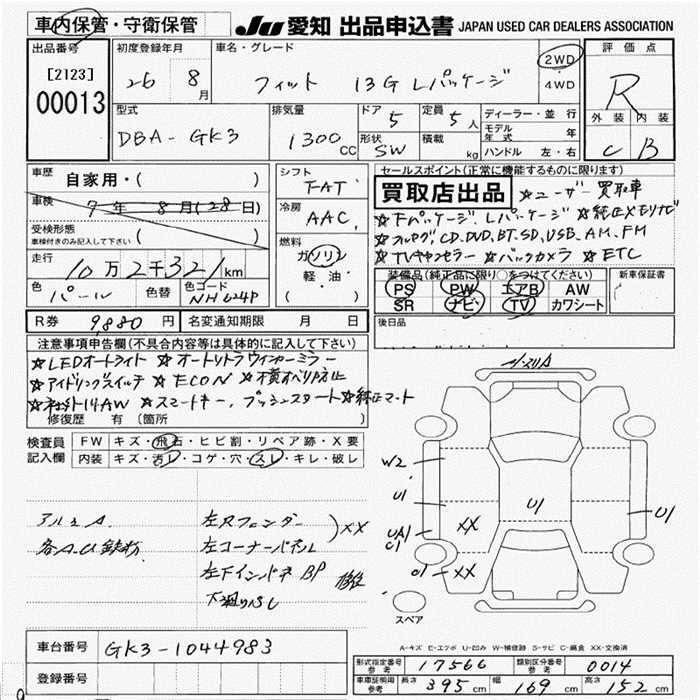 車内保管・守衛保管
JU 愛知 出品申込書 JAPAN USED CAR DEALERS ASSOCIATION
出品番号
[2123]
00013
初度登録年月
26 8月
車名・グレード
フィット 13G Lパッケージ
2WD
4WD
評価点
R
外装 内装
C B
型式
DBA-GK3
排気量
1300 CC
ドア 5
形状 SW
定員 5人
積載 kg
ディーラー・並行
モデル年式 年
ハンドル 左・右
車歴 自家用・( )
車検 7年 8月(28日)
受検形態 ( )
車検付きのみ記入して下さい
走行 10万2千321km
色 パール 色替 色コード NH624P
シフト FAT
冷房 AAC
燃料 ガソリン
軽油
( )
セールスポイント(正常に機能するものに限ります)
買取店出品 ☆ユーザー買取車
☆Fパッケージ、Lパッケージ ☆純正メモリナビ
☆フルセグ,CD,DVD,BT,SD,USB,AM,FM
☆TVキャンセラー ☆バックカメラ ☆ETC
装備品(純正品に限り○をつけてください) 新車保証書
PS PW エアB AW
SR ナビ TV カワシート
後日品
R券 9,880円 名変通知期限 月 日
注意事項申告欄(不具合内容等は具体的に記入して下さい)
☆LEDオートライト ☆オートリトラウインカーミラー
☆アイドリングスイッチ ☆ECON ☆横すべり防止
☆社外14AW ☆スマートキー,プッシュスタート ☆純正マット
修復歴 有(箇所 )
検査員記入欄
FW キズ・飛石・ヒビ割・リペア跡・X要
内装 キズ・汚レ・コゲ・穴・スレ・キレ・破レ
左Rフェンダー
左コーナーパネル
XX
各A・U鉄粉
左下インパネBP
W2
U1
UA1
C1
U1
XX
U1
XX
スペア
A-キズ E-エクボ U-凹み W-補修跡 S-サビ C-腐食 XX-交換済
車台番号 GK3-1044983
登録番号
形式指定番号 参考 17566 類別区分番号 参考 0014
車庫証明用 参考 長さ 395cm 幅 169cm 高さ 152cm